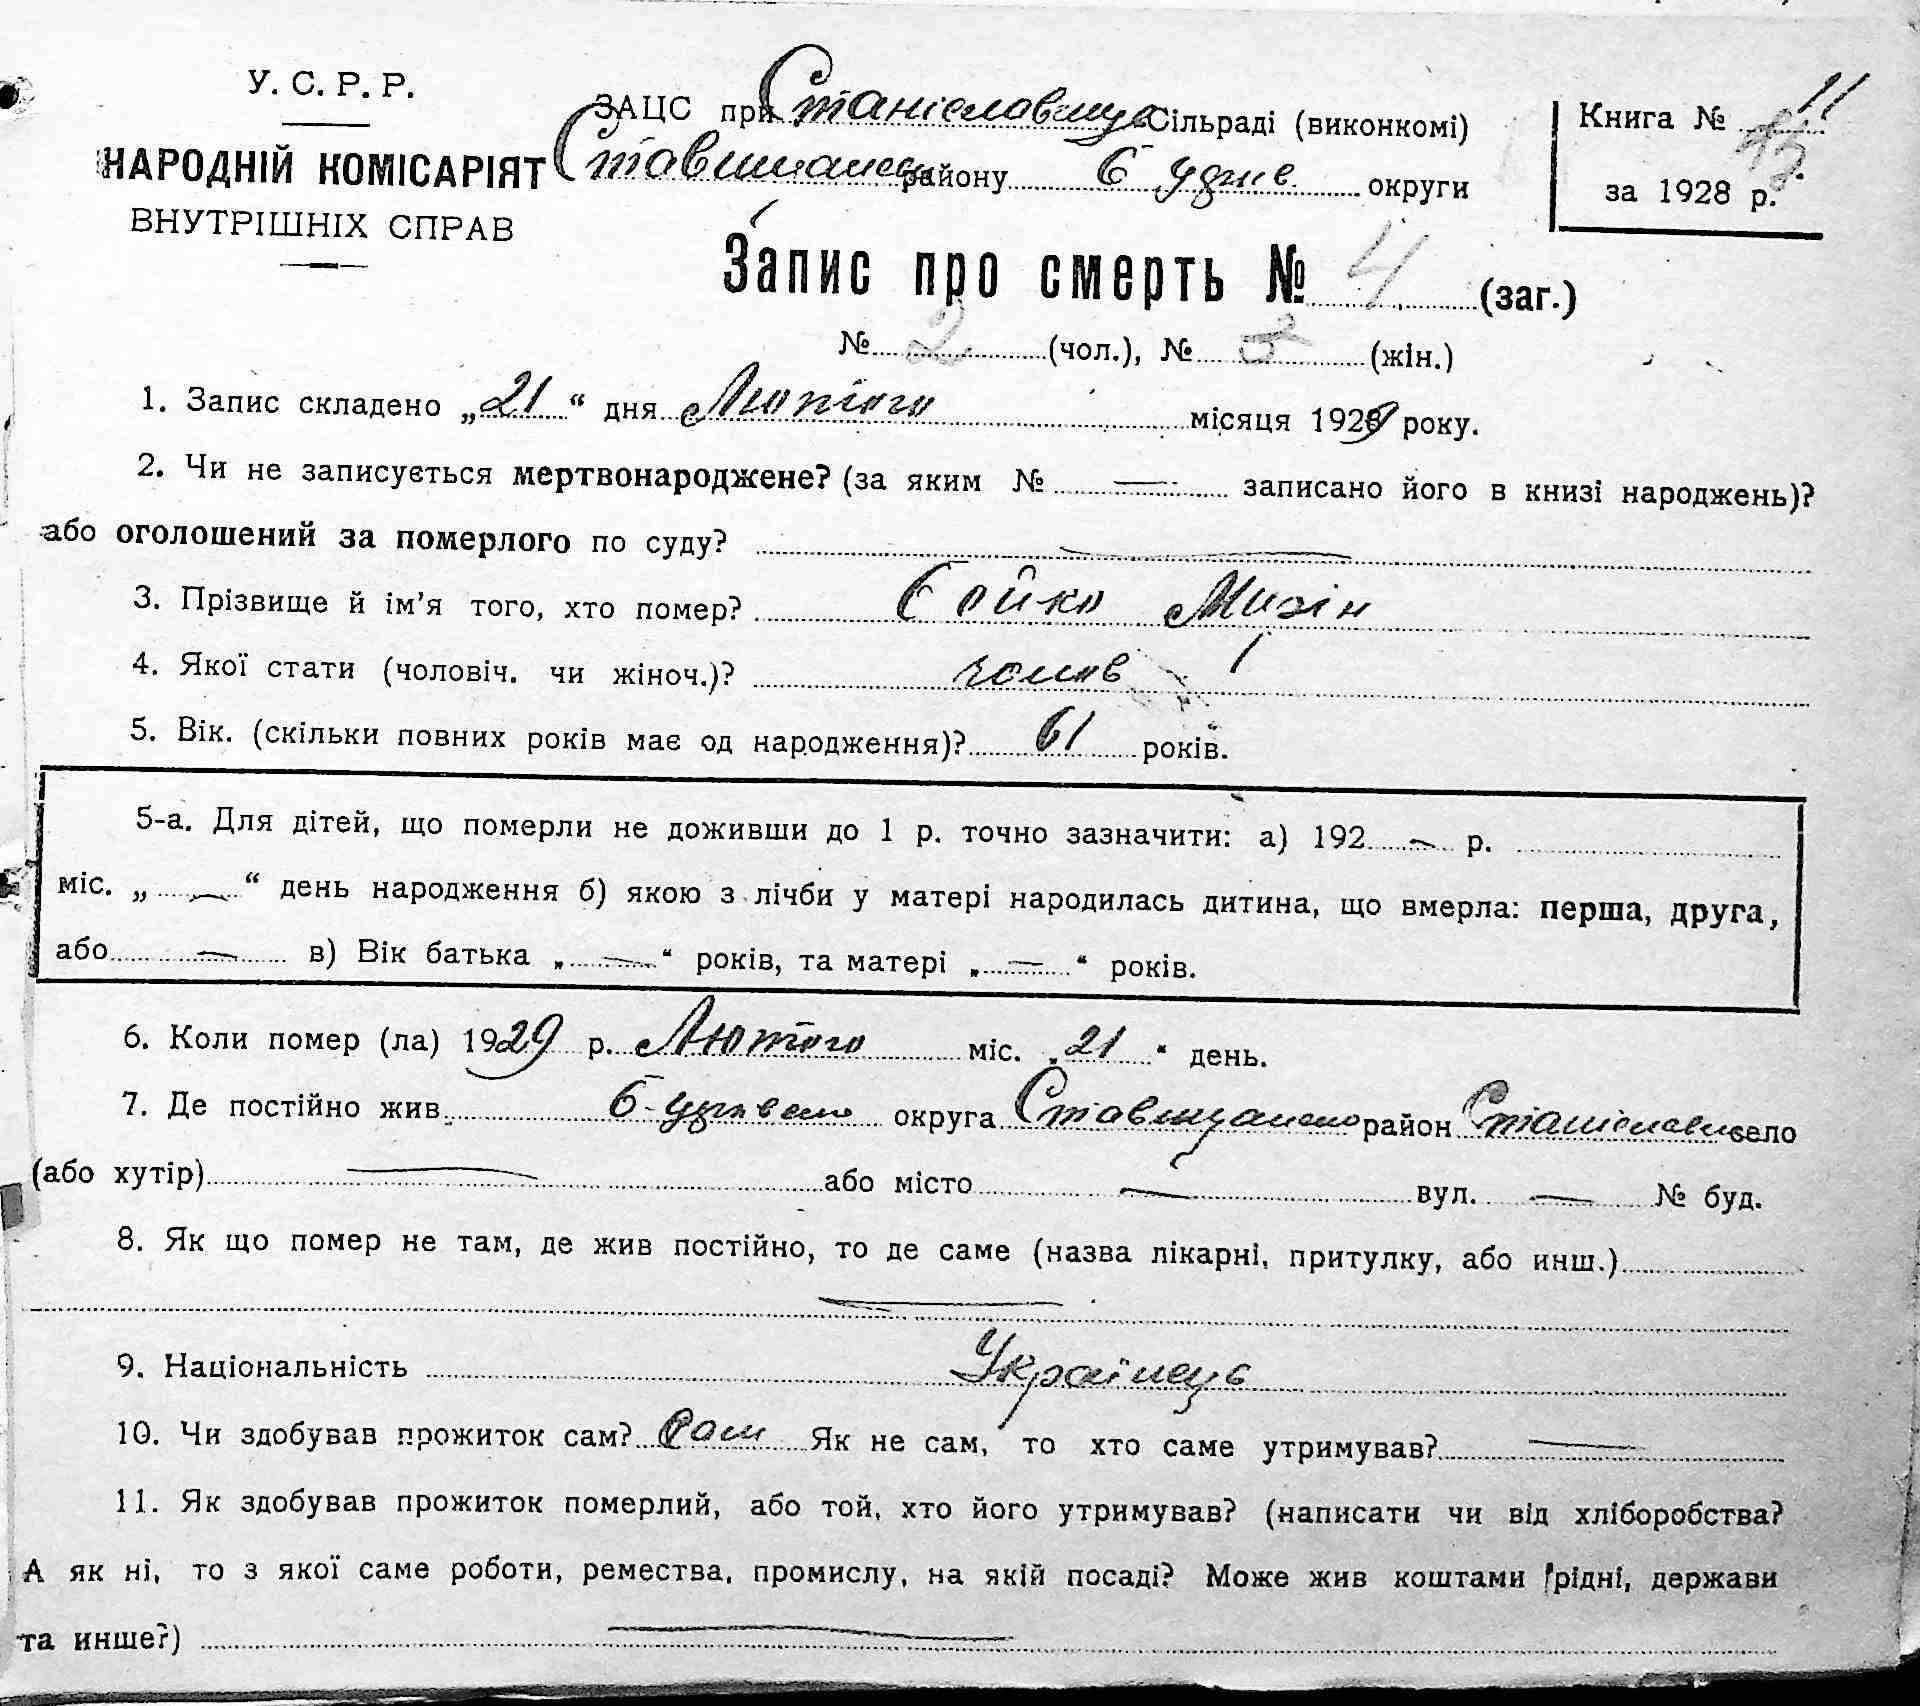 У. С. Р. Р.
НАРОДНІЙ КОМІСАРІЯТ
ВНУТРІШНІХ СПРАВ
ЗАЦС при Станіславщус Сільраді (виконкомі)
Ставищансь району Б-Удзнів округи
Книга № 11
за 1928 р.
Запис про смерть № 4 (заг.)
№ 2 (чол.), № (жін.)
1. Запис складено „21“ дня Лютого місяця 1929 року.
2. Чи не записується мертвонароджене? (за яким № — записано його в книзі народжень)?
або оголошений за померлого по суду? —
3. Прізвище й ім'я того, хто помер? Бойко
4. Якої стати (чоловіч. чи жіноч.)? чолов
5. Вік. (скільки повних років має од народження)? 61 років.
5-а. Для дітей, що померли не доживши до 1 р. точно зазначити: а) 192 — р.
міс. „ — “ день народження б) якою з лічби у матері народилась дитина, що вмерла: перша, друга,
або — в) Вік батька „ — “ років, та матері „ — “ років.
6. Коли помер (ла) 1929 р. Лютого міс. „21“ день.
7. Де постійно жив округа район село
(або хутір) — або місто — вул. — № буд.
8. Як що помер не там, де жив постійно, то де саме (назва лікарні, притулку, або инш.)
—
9. Національність Українець
10. Чи здобував прожиток сам? Сам Як не сам, то хто саме утримував? —
11. Як здобував прожиток померлий, або той, хто його утримував? (написати чи від хліборобства?
А як ні, то з якої саме роботи, ремества, промислу, на якій посаді? Може жив коштами рідні, держави
та инше?) —